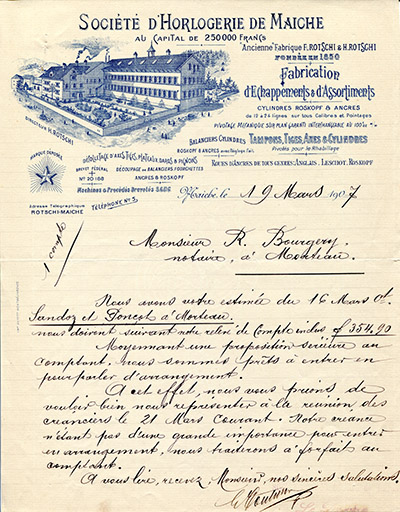 SOCIÉTÉ D'HORLOGERIE DE MAICHE
AU CAPITAL DE 250000 FRANCS
Ancienne Fabrique F. ROTSCHI & H. ROTSCHI
FONDÉE EN 1850
Fabrication
d'Echappements & d'Assortiments
CYLINDRES ROSKOPF & ANCRES
de 10 à 24 lignes sur tous Calibres et Pointages
PIVOTAGE MÉCANIQUE SUR PLAN GARANTI INTERCHANGEABLE
BALANCIERS CYLINDRES
ROSKOPF & ANCRES avec Réglage Fait
TAMPONS, TIGES, AXES & CYLINDRES
Pivotés pour le Rhabillage
ROUES D'ANCRES DE TOUS GENRES: ANGLAIS, LESCHOT, ROSKOPF
DIRECTEUR H. ROTSCHI
MARQUE DÉPOSÉE
DÉCOLLETAGE D'AXES TIGES, PLATEAUX, DARDS & PIGNONS
BREVET FÉDÉRAL
No 20168
DÉCOUPAGE DE BALANCIERS FOURCHETTES
ANCRES & ROSKOPF
Machines & Procédés Brevetés S.G.D.G.
Adresse Télégraphique
ROTSCHI-MAICHE
TÉLÉPHONE No 5
Maiche le 19 Mars 1907
1 compte
Monsieur R. Bourgery
notaire, à Morteau.
Nous avons votre estimée du 16 Mars ct.
Sandoz et Poncot à Morteau
nous doivent suivant notre relevé de Compte inclus f 354.90
Moyennant une proposition sérieuse au
comptant, nous sommes prêts à entrer en
pourparler d'arrangement.
A cet effet, nous vous prions de
vouloir bien nous représenter à la réunion des
créanciers le 21 Mars Courant. Notre créance
n'étant pas d'une grande importance pour entrer
en arrangement, nous traiterons à forfait au
comptant.
A vous lire, recevez Monsieur, nos sincères salutations.